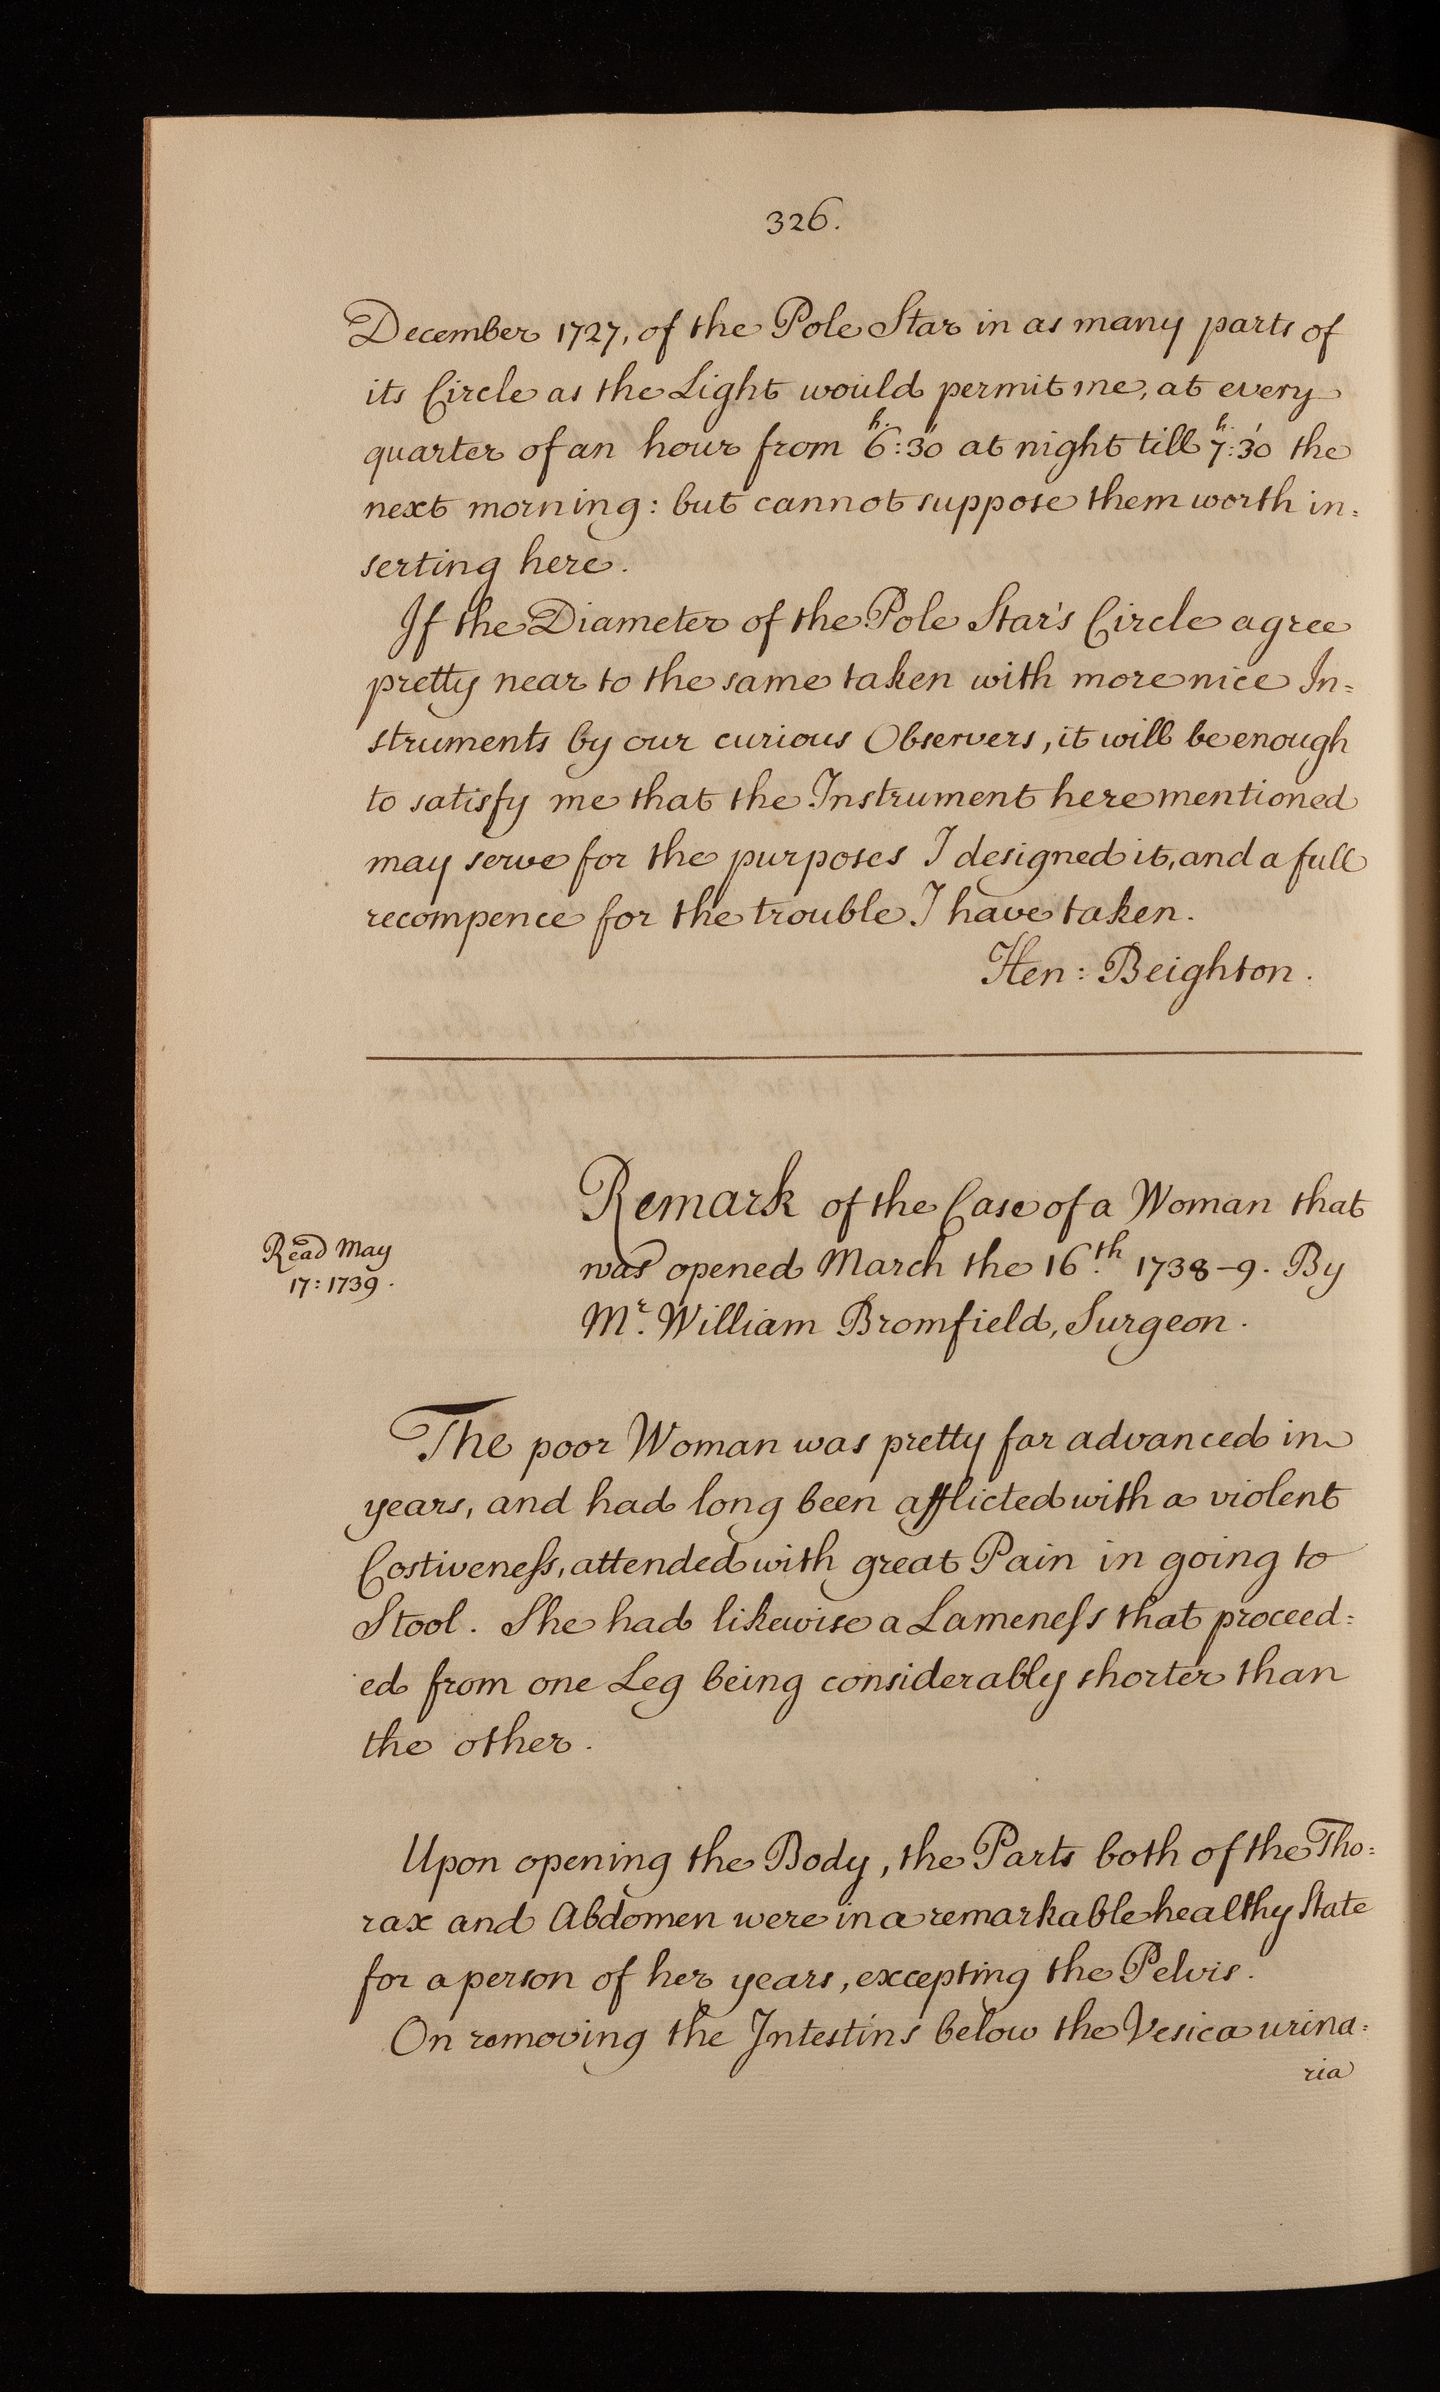 326.
December 1727, of the Pole Star in as many parts of
its Circle as the Light would permit me, at every
quarter of an hour from 6h.:30' at night till 7h.:30' the
next morning: but cannot suppose them worth in=
serting here.
If the Diameter of the Pole Star's Circle agree
pretty near to the same taken with more nice In=
struments by our curious Observers, it will be enough
to satisfy me that the Instrument here mentioned
may serve for the purposes I designed it, and a full
recompence for the trouble I have taken.
Hen: Beighton.
Remark of the Case of a Woman that
was opened March the 16.th 1738-9. By
Mr. William Bromfield, Surgeon.
Read May
17: 1739.
The poor Woman was pretty far advanced in
years, and had long been afflicted with a violent
Costiveneſs, attended with great Pain in going to
Stool. She had likewise a Lameneſs that proceed=
ed from one Leg being considerably shorter than
the other.
Upon opening the Body, the Parts both of the Tho=
rax and Abdomen were in a remarkable healthy State
for a person of her years, excepting the Pelvis.
On removing the Intestins below the Vesica urina=
ria